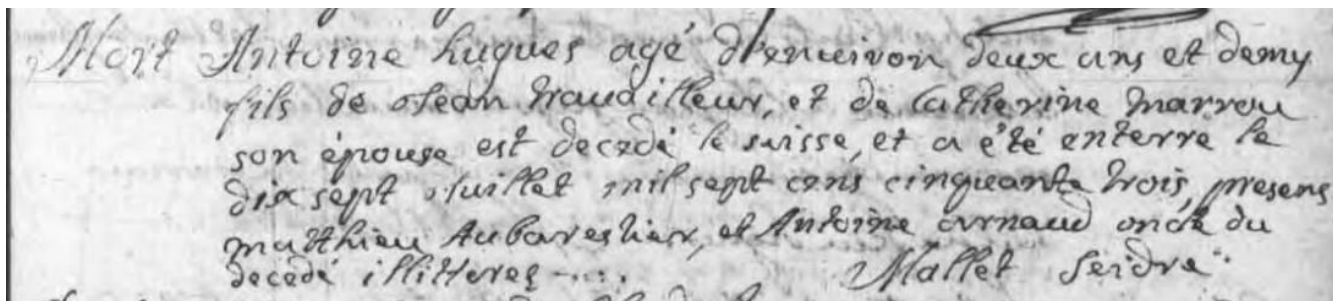 Mort Antoine hugues agé d'enuiron deux ans et demy
fils de Jean trauailleur, et de Catherine marrou
son épouse est decedé le suisse, et a été enterré le
dix sept Juillet mil sept cens cinquante trois, presens
matthieu Aubarestier, et Antoine arnaud oncle du
decedé illitterés
Mallet